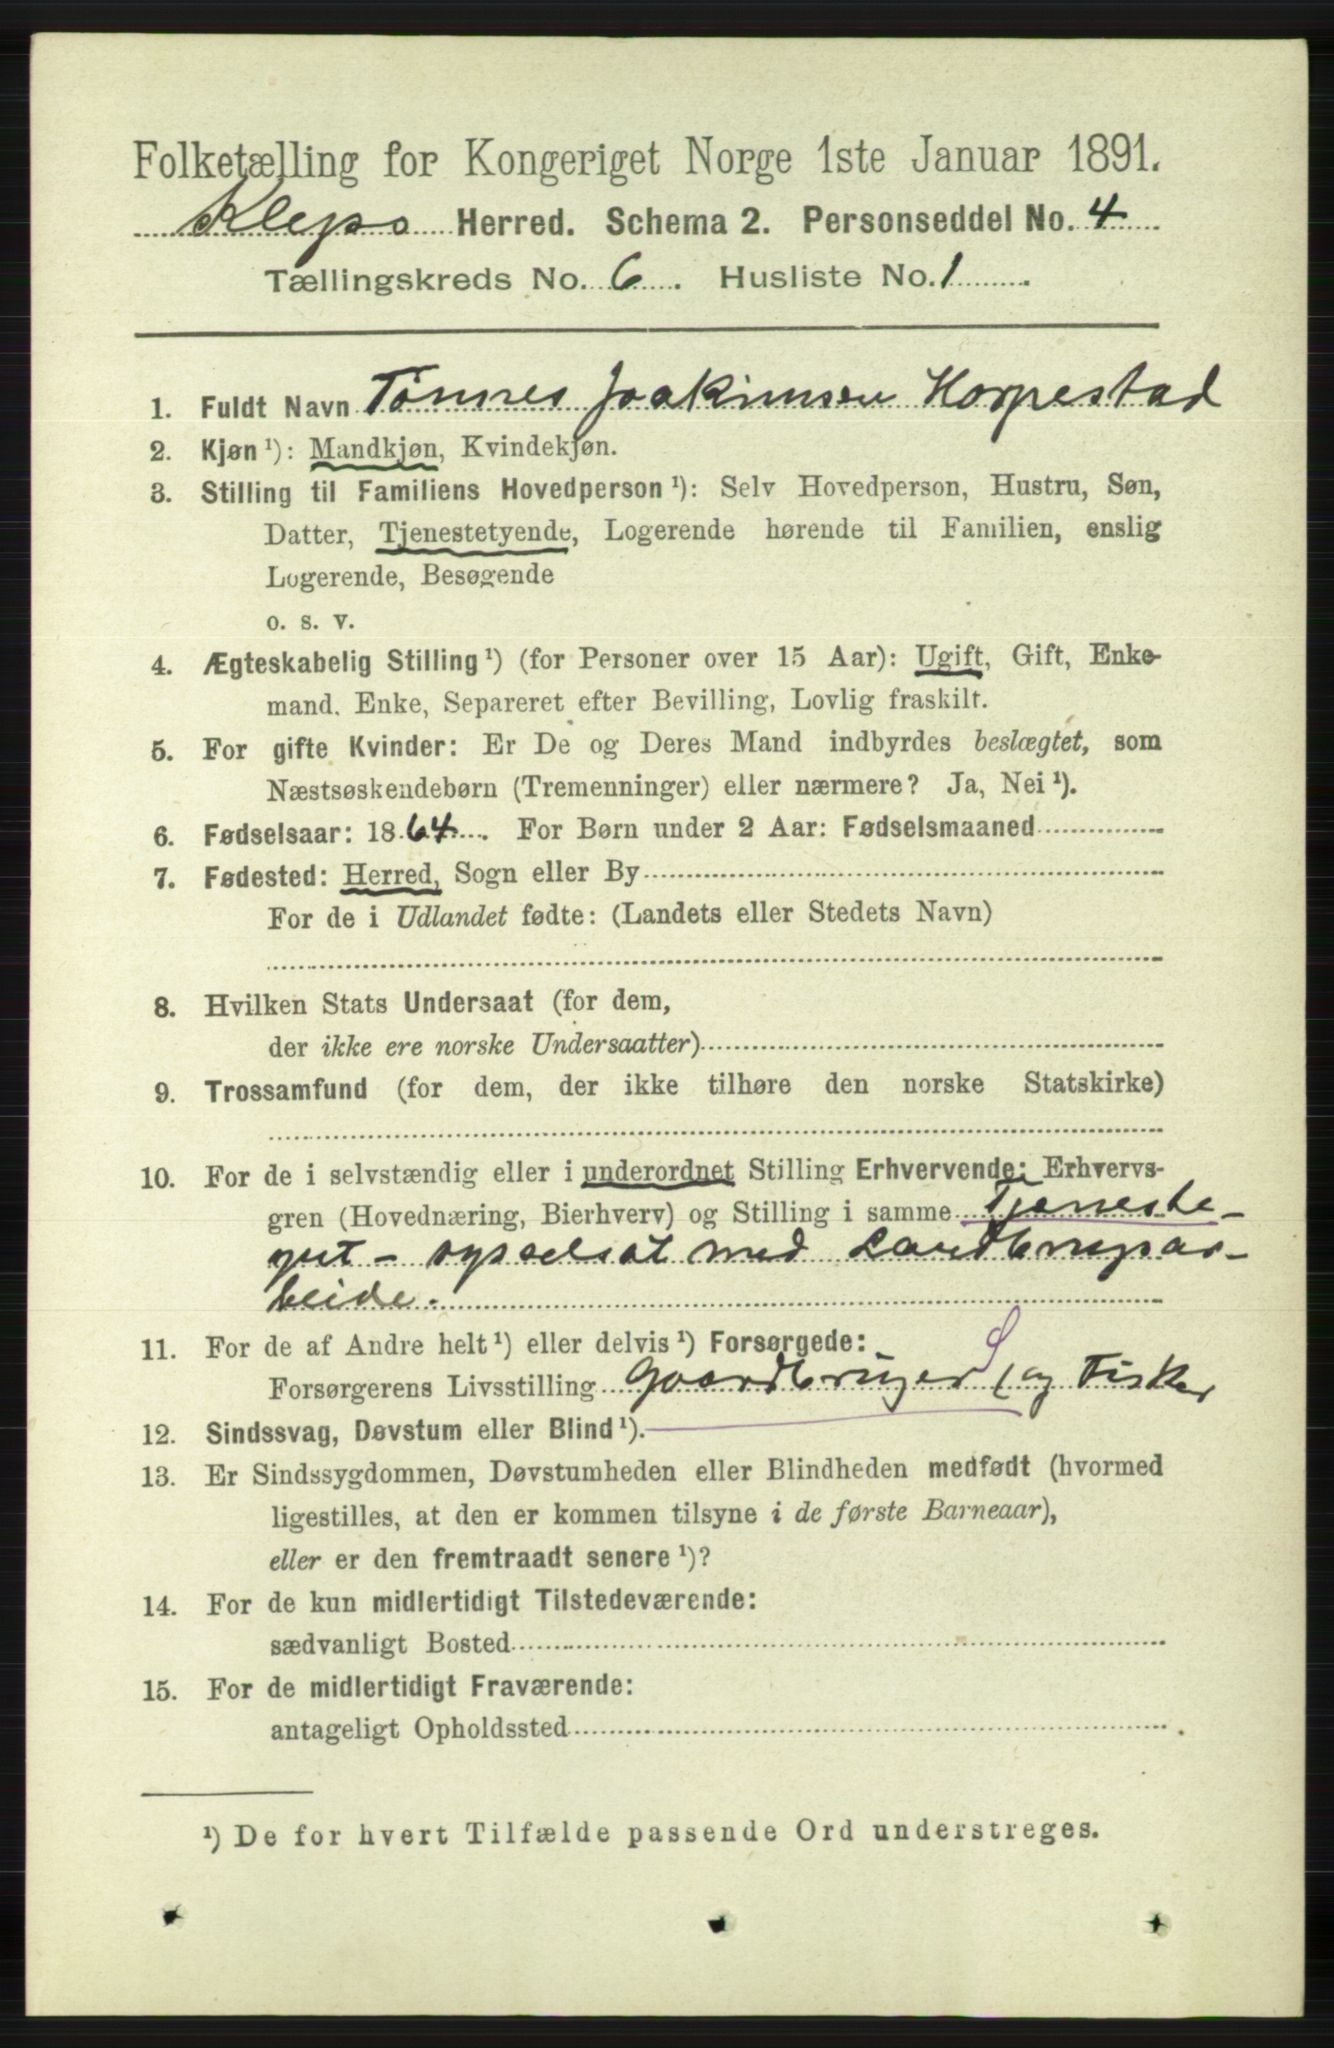 Folketælling for Kongeriget Norge 1ste Januar 1891.
Klepp Herred. Schema 2. Personseddel No. 4
Tællingskreds No. 6. Husliste No. 1
1. Fuldt Navn Tönnes Joakimsen Horpestad
2. Kjøn ¹): Mandkjøn, Kvindekjøn.
3. Stilling til Familiens Hovedperson ¹): Selv Hovedperson, Hustru, Søn,
Datter, Tjenestetyende, Logerende hørende til Familien, enslig
Logerende, Besøgende
o. s. v.
4. Ægteskabelig Stilling ¹) (for Personer over 15 Aar): Ugift, Gift, Enke-
mand, Enke, Separeret efter Bevilling, Lovlig fraskilt.
5. For gifte Kvinder: Er De og Deres Mand indbyrdes beslægtet, som
Næstsøskendebørn (Tremenninger) eller nærmere? Ja, Nei ¹).
6. Fødselsaar: 1864. For Børn under 2 Aar: Fødselsmaaned
7. Fødested: Herred, Sogn eller By
For de i Udlandet fødte: (Landets eller Stedets Navn)
8. Hvilken Stats Undersaat (for dem,
der ikke ere norske Undersaatter)
9. Trossamfund (for dem, der ikke tilhøre den norske Statskirke)
10. For de i selvstændig eller i underordnet Stilling Erhvervende: Erhvervs-
gren (Hovednæring, Bierhverv) og Stilling i samme Tjeneste-
gut - sysselsat med Landbrugsar-
beide.
11. For de af Andre helt ¹) eller delvis ¹) Forsørgede:
Forsørgerens Livsstilling Gaardbruger (og Fisker
12. Sindssvag, Døvstum eller Blind ¹).
13. Er Sindssygdommen, Døvstumheden eller Blindheden medfødt (hvormed
ligestilles, at den er kommen tilsyne i de første Barneaar),
eller er den fremtraadt senere ¹)?
14. For de kun midlertidigt Tilstedeværende:
sædvanligt Bosted
15. For de midlertidigt Fraværende:
antageligt Opholdssted
¹) De for hvert Tilfælde passende Ord understreges.